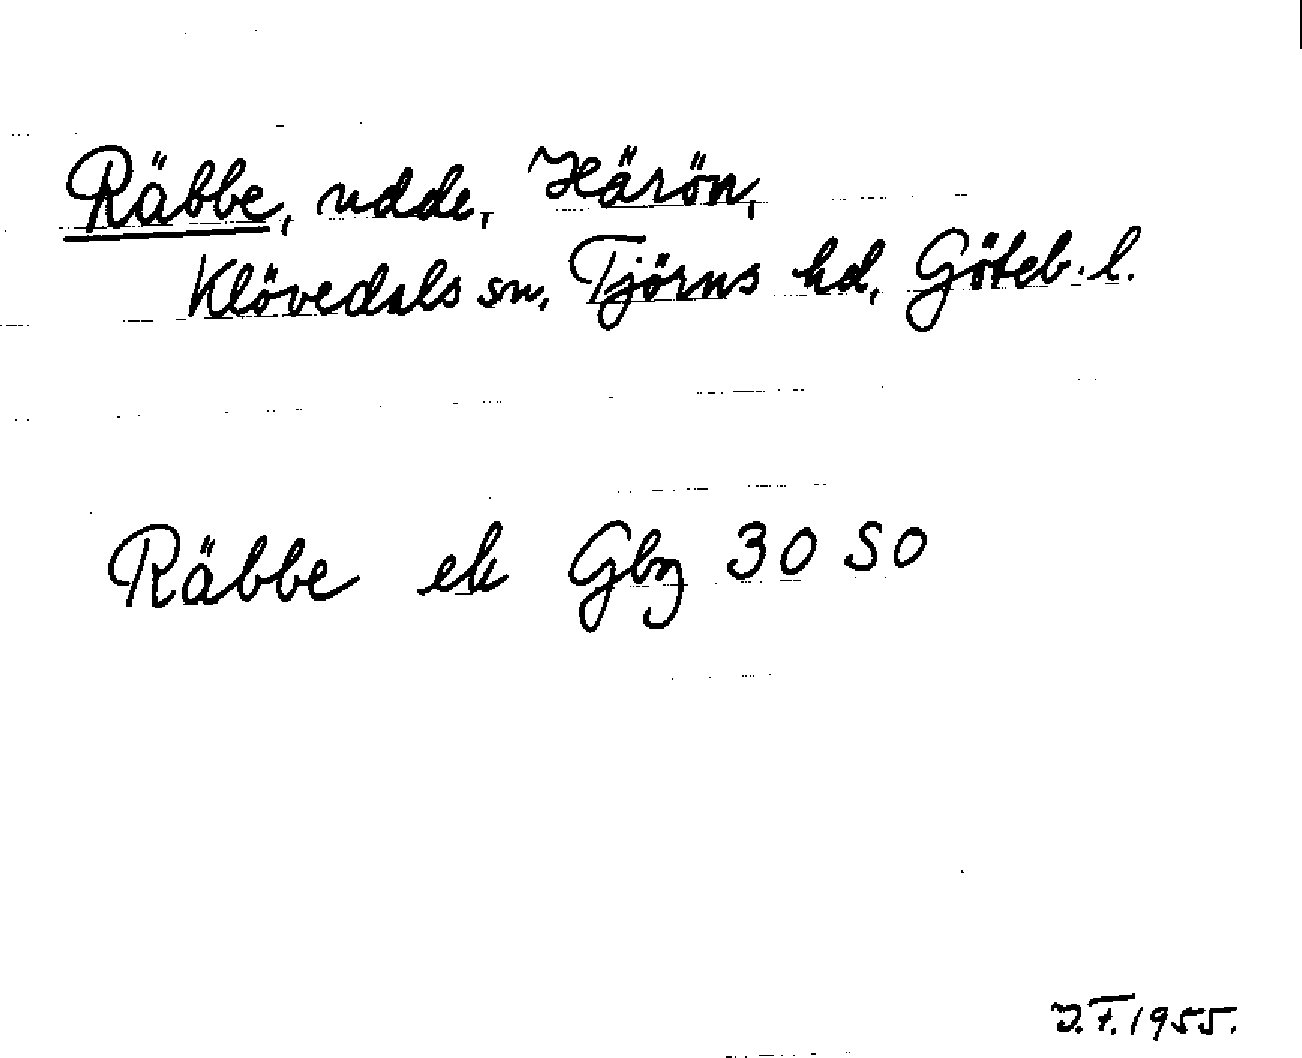 Räbbe, udde, Härön,
Klövedals sn, Tjörns hd, Göteb. l.
Räbbe ek Gbg 30 SO
J.F. 1955.